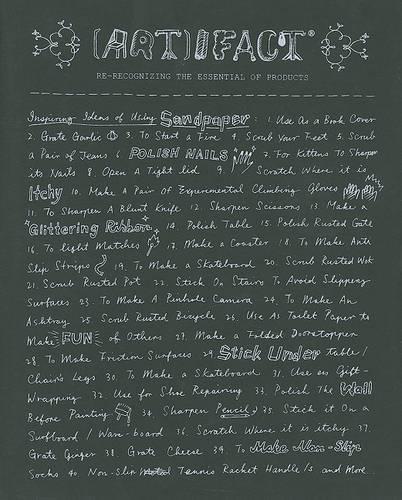 (ART)IFACT
RE-RECOGNIZING THE ESSENTIAL OF PRODUCTS
Inspiring Ideas of Using Sandpaper: 1. Use As a Book Cover
2. Grate Garlic 3. To Start a Fire 4. Scrub Your Feet 5. Scrub
a Pair of Jeans 6. POLISH NAILS 7. For Kittens To Sharpen
its Nails 8. Open A Tight lid 9. Scratch Where it is
Itchy 10. Make A Pair OF Experimental Climbing Gloves
11. To Sharpen A Blunt Knife 12. Sharpen Scissors 13. Make a
Glittering Ribbon 14. Polish Table 15. Polish Rusted Gate
16. To light Matches 17. Make a Coaster 18. To Make Anti
Slip Strips 19. To Make a Skateboard 20. Scrub Rusted Wok
21. Scrub Rusted Pot 22. Stick On Stairs To Avoid Slippery
Surfaces 23. To Make A Pinhole Camera 24. To Make An
Ashtray 25. Scrub Rusted Bicycle 26. Use As Toilet Paper to
Make FUN of Others 27. Make a Folded Doorstopper
28 To Make Friction Surfaces 29. Stick Under table /
Chair's Legs 30. To Make a Skateboard 31. Use as Gift-
Wrapping 32. Use for Shoe Repairing 33. Polish The Wall
Before Painting 34. Sharpen Pencil 35. Stick it On a
Surfboard / Wave-board 36. Scratch Where it is itchy 37.
Grate Ginger 38 Grate Cheese 39. To Make Non-Slip
Socks 40. Non-Slip Tennis Racket Handle/s and More.